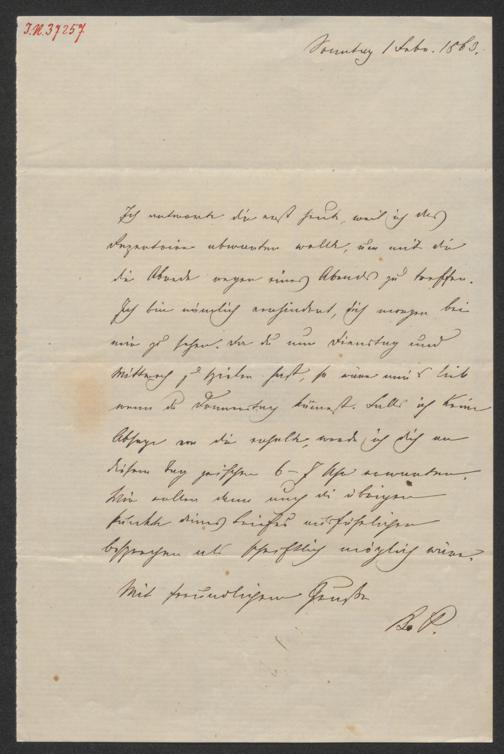 I.N. 37257
Sonntag 1 Febr. 1863.
Ich antworte dir erst heute, weil ich das
Repertoire abwarten wollte, um mit dir
die Abrede wegen eines Abends zu treffen.
Ich bin nämlich verhindert, dich morgen bei
mir zu sehen. Da du nun Dienstag und
Mittwoch zu spielen hast, so wäre mir's lieb
wenn du Donnerstag kämest. Falls ich keine
Absage von dir erhalte, werde ich dich an
diesem Tag zwischen 6–7 Uhr erwarten.
Wir wollen dann auch die übrigen
Punkte deines Briefes ausführlicher
besprechen als schriftlich möglich wäre.
Mit freundlichem Gruße